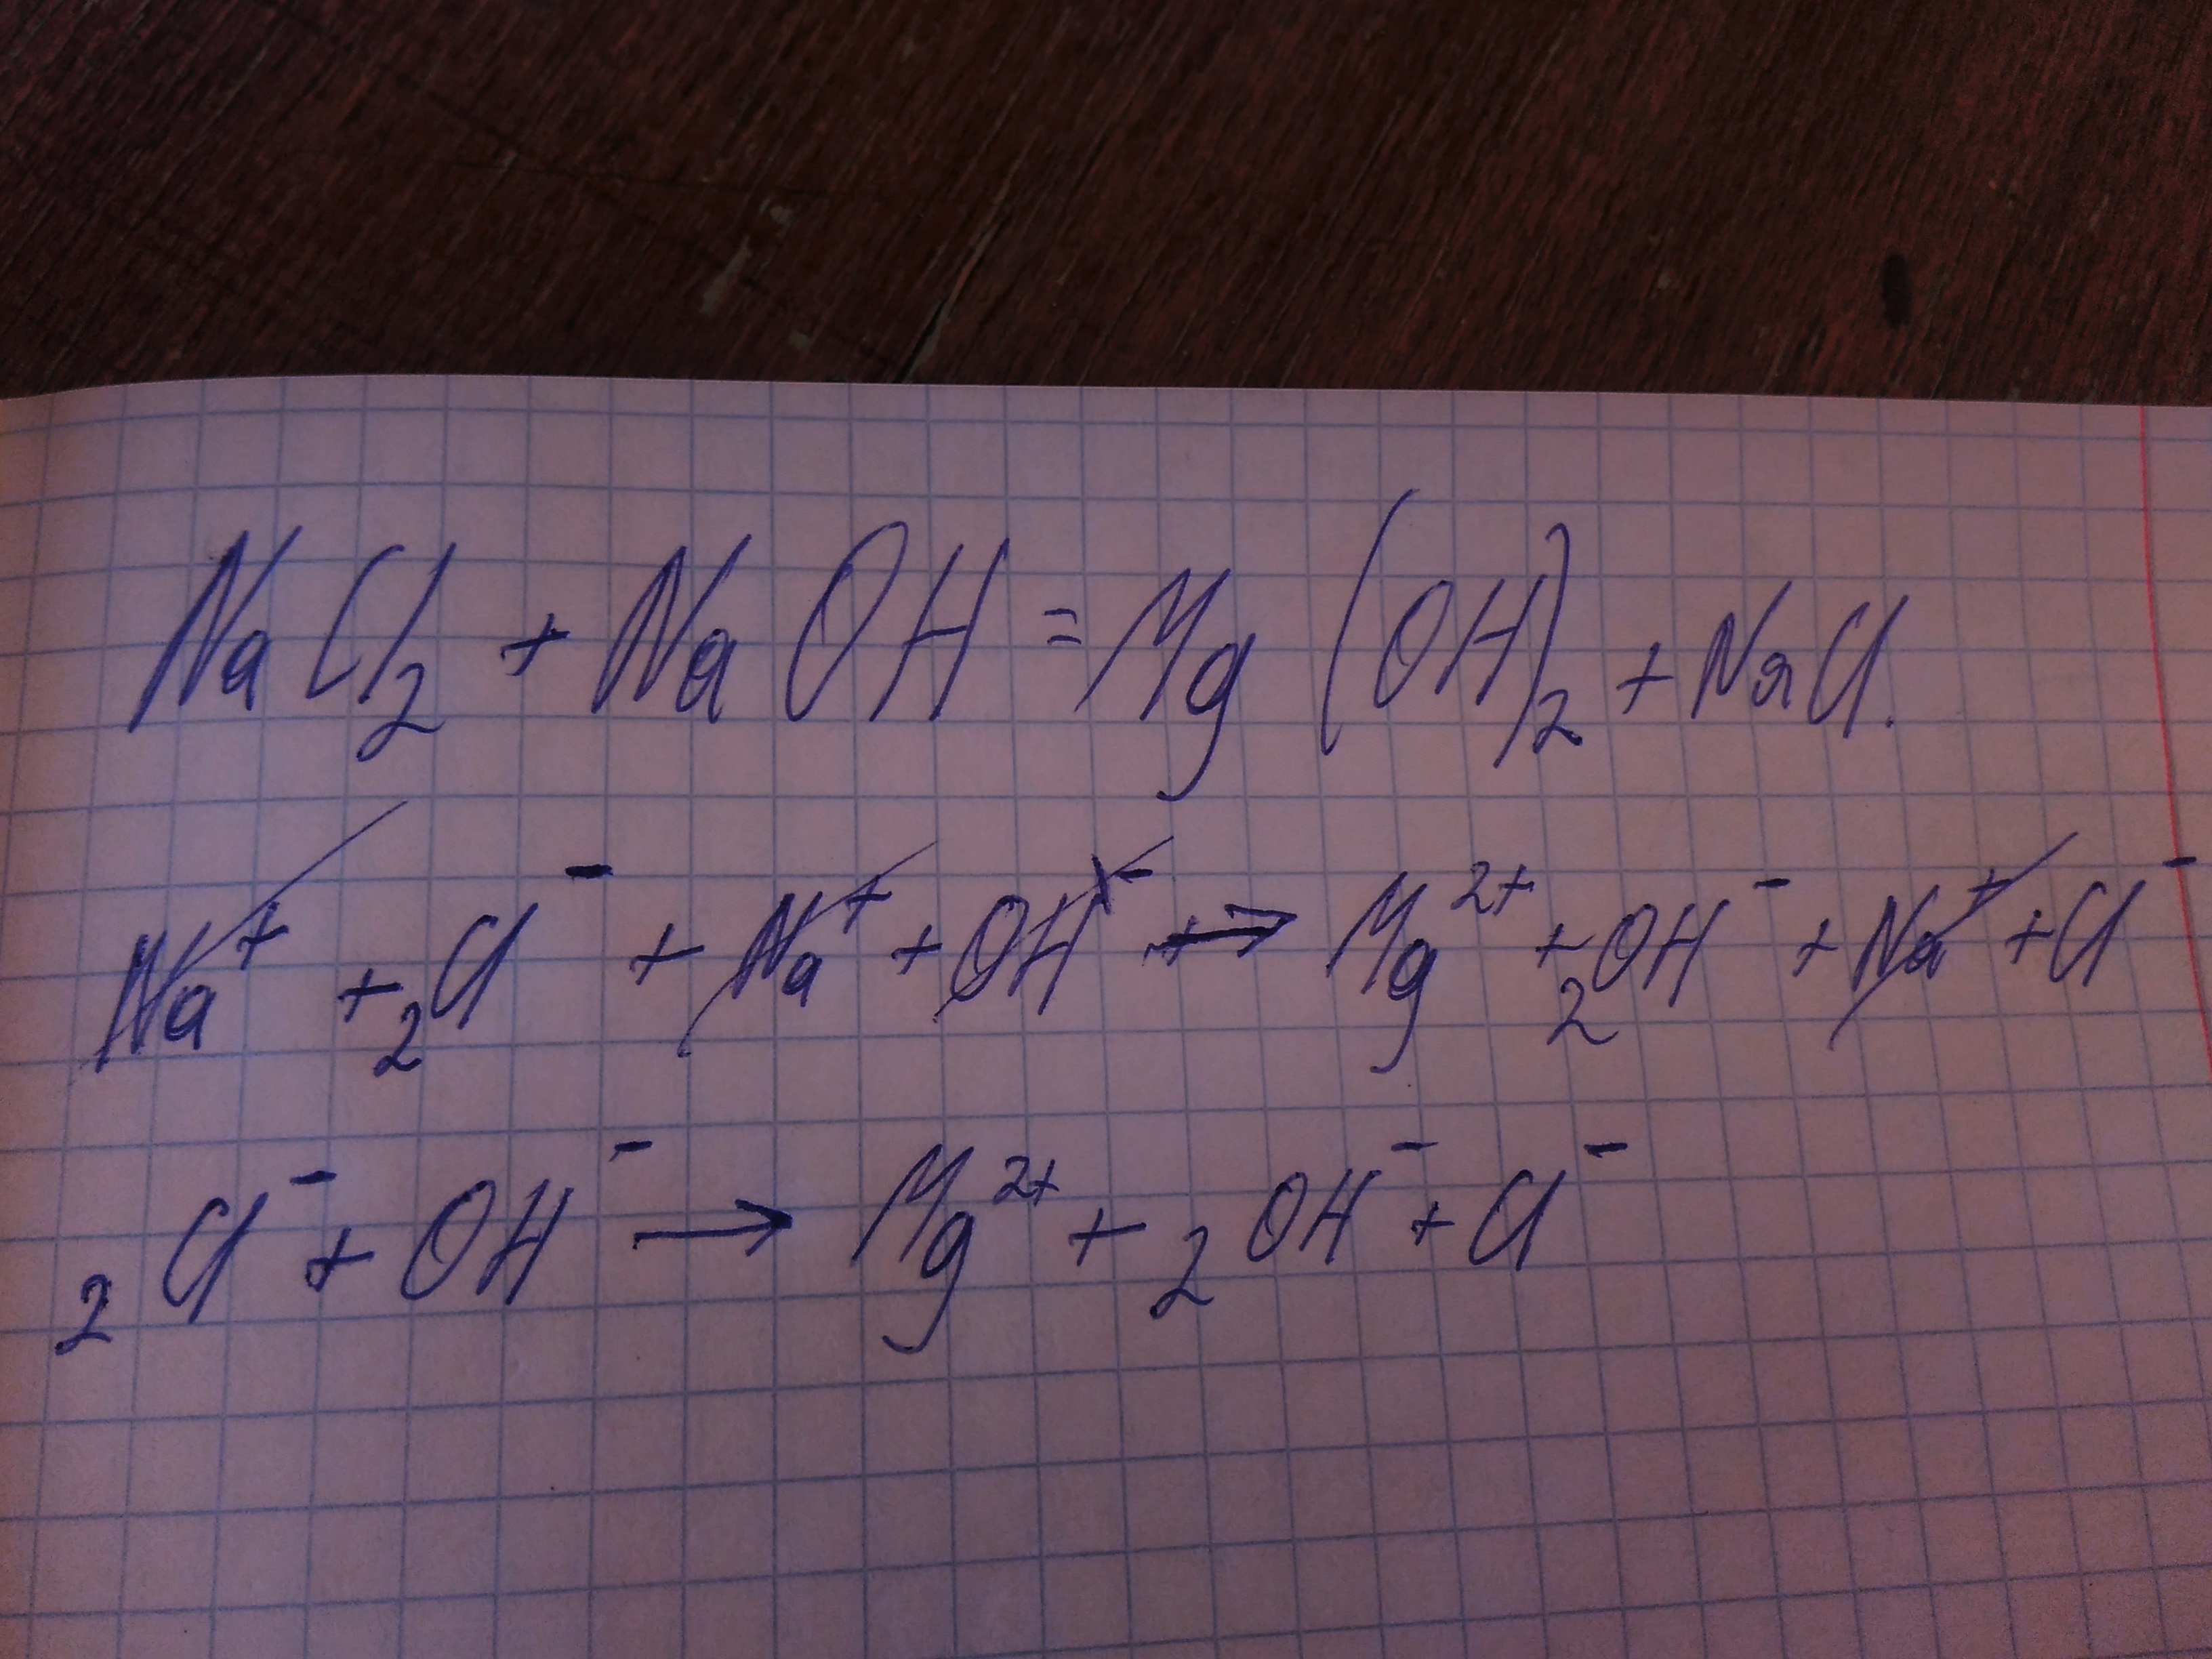 NaCl₂ + NaOH = Mg(OH)₂ + NaCl.
Na⁺ + 2Cl⁻ + Na⁺ + OH⁻ → Mg²⁺ + 2OH⁻ + Na⁺ + Cl⁻
2Cl⁻ + OH⁻ → Mg²⁺ + 2OH⁻ + Cl⁻